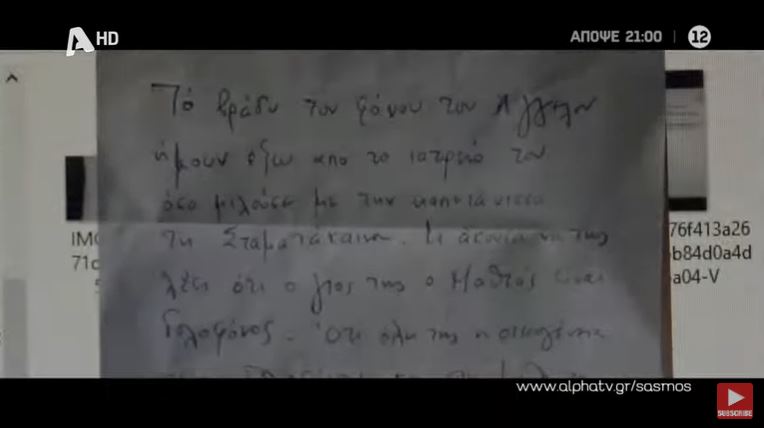 A HD
ΑΠΟΨΕ 21:00 | 12
Το βράδυ του φόνου του Άγγελου
ήμουν έξω από το ιατρείο του
όσο μιλούσε με την καπετάνισσα
τη Σταματάκαινα. Κι άκουσα να της
λέει ότι ο γιος της ο Μαθιός είναι
δολοφόνος. Ότι όλη της η οικογένεια
IMG
71c
5
76f413a26
b84d0a4d
a04-V
www.alphatv.gr/sasmos
SUBSCRIBE